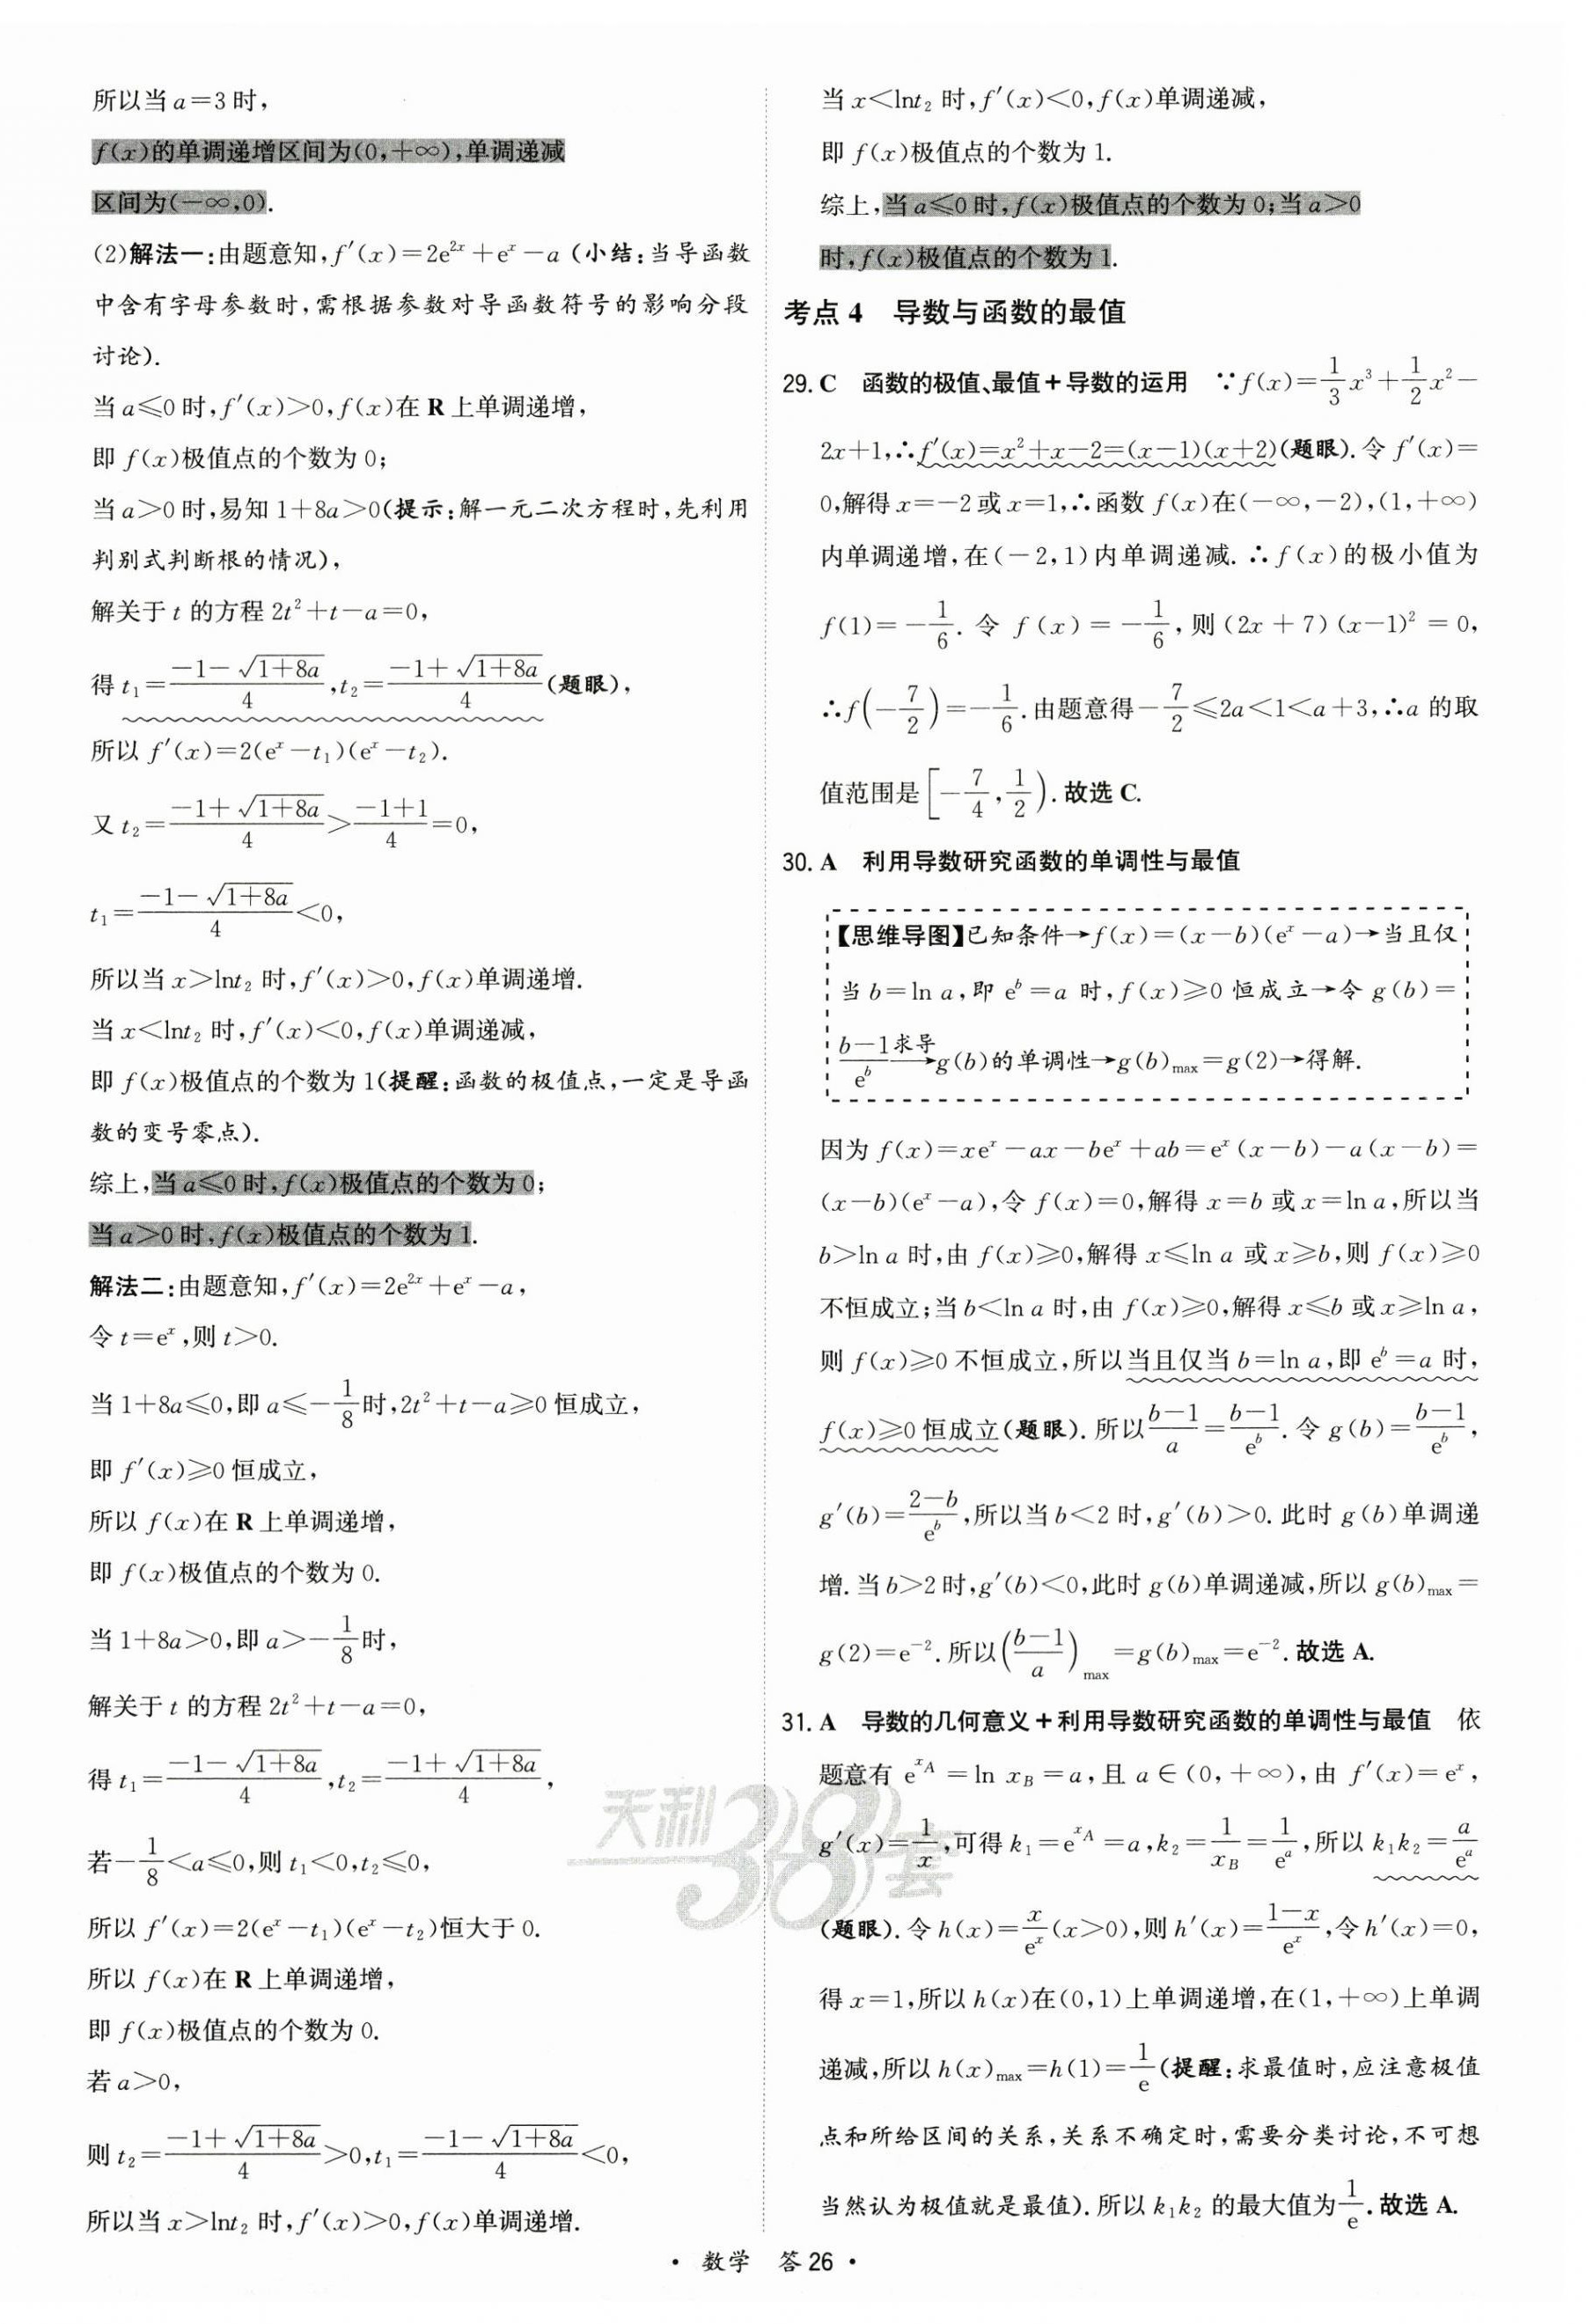 所以当 a=3 时,
f(x)的单调递增区间为(0,+∞),单调递减
区间为(-∞,0).
(2)解法一:由题意知,f′(x)=2e^{2x}+e^x-a (小结:当导函数
中含有字母参数时,需根据参数对导函数符号的影响分段
讨论).
当 a⩽0 时,f′(x)>0,f(x)在 R 上单调递增,
即 f(x)极值点的个数为 0;
当 a>0 时,易知 1+8a>0(提示:解一元二次方程时,先利用
判别式判断根的情况),
解关于 t 的方程 2t²+t-a=0,
得 t₁=\frac{-1-√(1+8a)}{4},t₂=\frac{-1+√(1+8a)}{4}(题眼),
所以 f′(x)=2(e^x-t₁)(e^x-t₂).
又 t₂=\frac{-1+√(1+8a)}{4}>\frac{-1+1}{4}=0,
t₁=\frac{-1-√(1+8a)}{4}<0,
所以当 x>lnt₂ 时,f′(x)>0,f(x)单调递增.
当 x<lnt₂ 时,f′(x)<0,f(x)单调递减,
即 f(x)极值点的个数为 1(提醒:函数的极值点,一定是导函
数的变号零点).
综上,当 a⩽0 时,f(x)极值点的个数为 0;
当 a>0 时,f(x)极值点的个数为 1.
解法二:由题意知,f′(x)=2e^{2x}+e^x-a,
令 t=e^x,则 t>0.
当 1+8a⩽0,即 a⩽-\frac{1}{8}时,2t²+t-a⩾0 恒成立,
即 f′(x)⩾0 恒成立,
所以 f(x)在 R 上单调递增,
即 f(x)极值点的个数为 0.
当 1+8a>0,即 a>-\frac{1}{8}时,
解关于 t 的方程 2t²+t-a=0,
得 t₁=\frac{-1-√(1+8a)}{4},t₂=\frac{-1+√(1+8a)}{4},
若-\frac{1}{8}<a⩽0,则 t₁<0,t₂⩽0,
所以 f′(x)=2(e^x-t₁)(e^x-t₂)恒大于 0.
所以 f(x)在 R 上单调递增,
即 f(x)极值点的个数为 0.
若 a>0,
则 t₂=\frac{-1+√(1+8a)}{4}>0,t₁=\frac{-1-√(1+8a)}{4}<0,
所以当 x>lnt₂ 时,f′(x)>0,f(x)单调递增.
当 x<lnt₂ 时,f′(x)<0,f(x)单调递减,
即 f(x)极值点的个数为 1.
综上,当 a⩽0 时,f(x)极值点的个数为 0;当 a>0
时,f(x)极值点的个数为 1.
考点 4 导数与函数的最值
29. C 函数的极值、最值+导数的运用 ∵f(x)=\frac{1}{3}x³+\frac{1}{2}x²-
2x+1,∴f′(x)=x²+x-2=(x-1)(x+2)(题眼).令 f′(x)=
0,解得 x=-2 或 x=1,∴函数 f(x)在(-∞,-2),(1,+∞)
内单调递增,在(-2,1)内单调递减.∴f(x)的极小值为
f(1)=-\frac{1}{6}.令 f(x)=-\frac{1}{6},则(2x+7)(x-1)²=0,
∴f(-\frac{7}{2})=-\frac{1}{6}.由题意得-\frac{7}{2}⩽2a<1<a+3,∴a 的取
值范围是[-\frac{7}{4},\frac{1}{2}).故选 C.
30. A 利用导数研究函数的单调性与最值
【思维导图】已知条件→f(x)=(x-b)(e^x-a)→当且仅
当 b=ln a,即 e^b=a 时,f(x)⩾0 恒成立→令 g(b)=
\frac{b-1}{e^b}求导→g(b)的单调性→g(b)_{max}=g(2)→得解.
因为 f(x)=xe^x-ax-be^x+ab=e^x(x-b)-a(x-b)=
(x-b)(e^x-a),令 f(x)=0,解得 x=b 或 x=ln a,所以当
b>ln a 时,由 f(x)⩾0,解得 x⩽ln a 或 x⩾b,则 f(x)⩾0
不恒成立;当 b<ln a 时,由 f(x)⩾0,解得 x⩽b 或 x⩾ln a,
则 f(x)⩾0 不恒成立,所以当且仅当 b=ln a,即 e^b=a 时,
f(x)⩾0 恒成立(题眼).所以\frac{b-1}{a}=\frac{b-1}{e^b}.令 g(b)=\frac{b-1}{e^b},
g′(b)=\frac{2-b}{e^b},所以当 b<2 时,g′(b)>0.此时 g(b)单调递
增.当 b>2 时,g′(b)<0,此时 g(b)单调递减,所以 g(b)_{max}=
g(2)=e^{-2}.所以(\frac{b-1}{a})_{max}=g(b)_{max}=e^{-2}.故选 A.
31. A 导数的几何意义+利用导数研究函数的单调性与最值 依
题意有 e^{x_A}=ln x_B=a,且 a∈(0,+∞),由 f′(x)=e^x,
g′(x)=\frac{1}{x},可得 k₁=e^{x_A}=a,k₂=\frac{1}{x_B}=\frac{1}{e^a},所以 k₁k₂=\frac{a}{e^a}
(题眼).令 h(x)=\frac{x}{e^x}(x>0),则 h′(x)=\frac{1-x}{e^x},令 h′(x)=0,
得 x=1,所以 h(x)在(0,1)上单调递增,在(1,+∞)上单调
递减,所以 h(x)_{max}=h(1)=\frac{1}{e}(提醒:求最值时,应注意极值
点和所给区间的关系,关系不确定时,需要分类讨论,不可想
当然认为极值就是最值).所以 k₁k₂ 的最大值为\frac{1}{e}.故选 A.
天利38套
· 数学 答26 ·